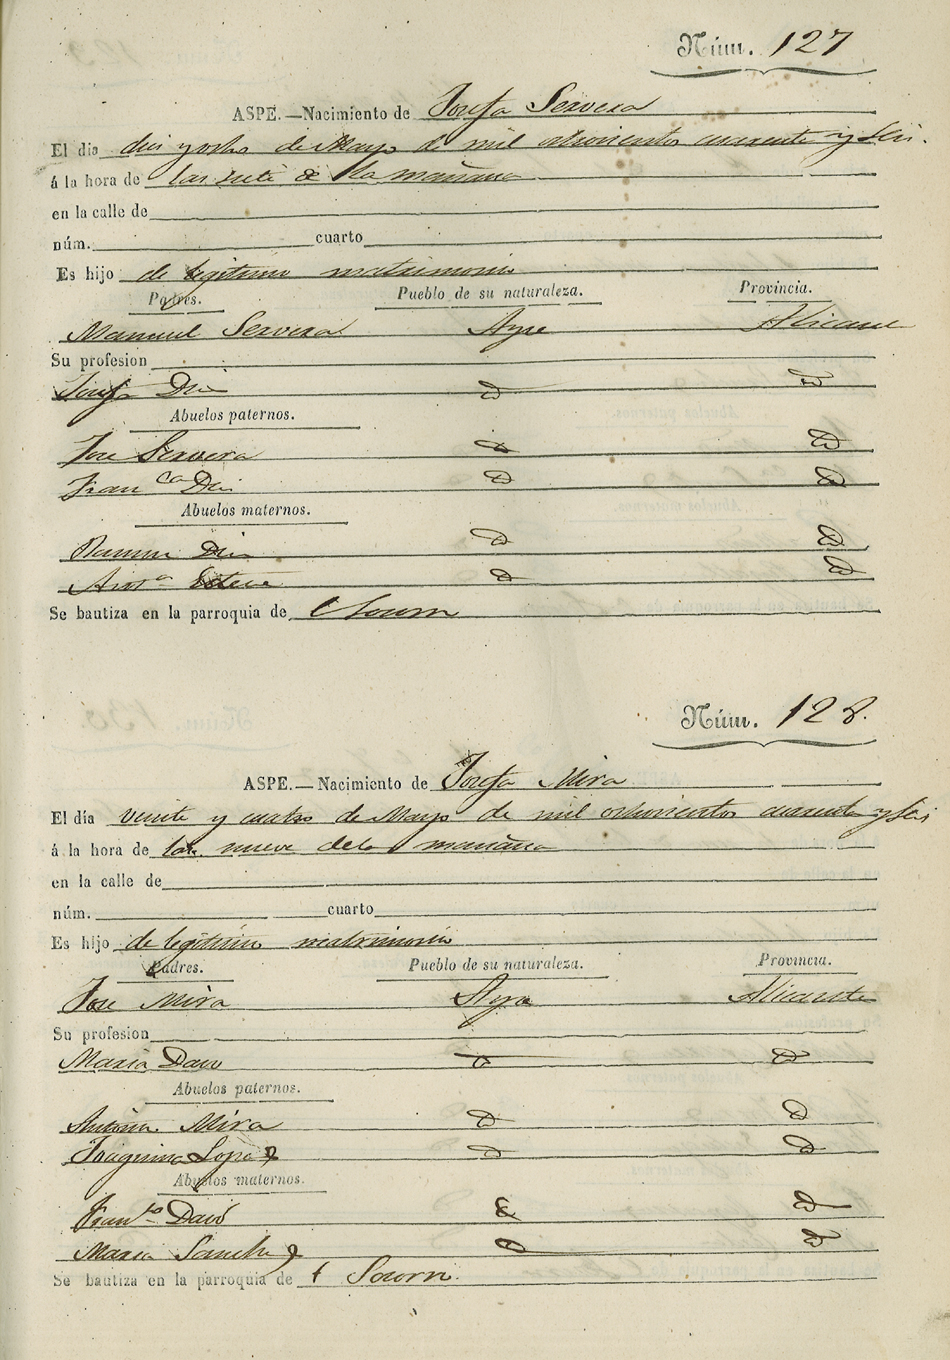 Núm. 127
ASPE.—Nacimiento de Josefa Servera
El dia dies y ocho de Mayo de mil ochocientos cuarenta y seis.
á la hora de las siete de la mañana
en la calle de
núm. cuarto
Es hijo de legitimo matrimonio
Padres. Pueblo de su naturaleza. Provincia.
Manuel Servera Aspe Alicante
Su profesion
Josefa D D
Abuelos paternos.
Jose Servera D D
Fran.ca D D
Abuelos maternos.
Ramon D D
Esteve D D
Se bautiza en la parroquia de Socorro
Núm. 128.
ASPE.—Nacimiento de Josefa Mira
El día veinte y cuatro de Mayo de mil ochocientos cuarenta y seis
á la hora de las nueve de la mañana
en la calle de
núm. cuarto
Es hijo de legitimo matrimonio
Padres. Pueblo de su naturaleza. Provincia.
Jose Mira Aspe Alicante
Su profesion
Maria Davo D D
Abuelos paternos.
Antonio Mira D D
Joaquina Lopez D D
Abuelos maternos.
Fran.co Davó D D
Maria Sanchez D D
Se bautiza en la parroquia de Socorro.